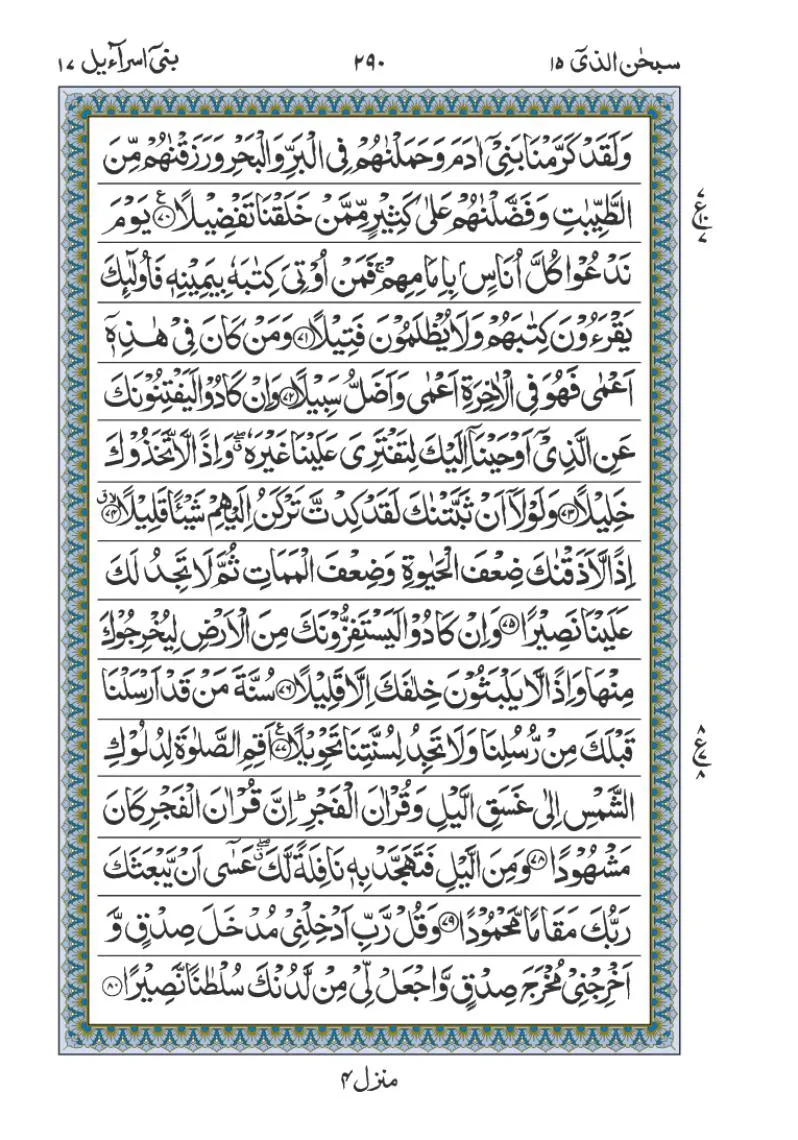 سبحٰن الذیٓ ۱۵ ۲۹۰ بنیٓ اسرآءیل ۱۷
وَلَقَدْ كَرَّمْنَا بَنِیْٓ اٰدَمَ وَحَمَلْنٰهُمْ فِی الْبَرِّ وَالْبَحْرِ وَرَزَقْنٰهُمْ مِّنَ
الطَّیِّبٰتِ وَفَضَّلْنٰهُمْ عَلٰی كَثِیْرٍ مِّمَّنْ خَلَقْنَا تَفْضِیْلًا ﴿۷۰﴾ ع یَوْمَ
۷ ع ۱۰ ۷
نَدْعُوْا كُلَّ اُنَاسٍۭ بِاِمَامِهِمْ ۚ فَمَنْ اُوْتِیَ كِتٰبَهٗ بِیَمِیْنِهٖ فَاُولٰٓئِكَ
یَقْرَءُوْنَ كِتٰبَهُمْ وَلَا یُظْلَمُوْنَ فَتِیْلًا ﴿۷۱﴾ وَمَنْ كَانَ فِیْ هٰذِهٖٓ
اَعْمٰی فَهُوَ فِی الْاٰخِرَةِ اَعْمٰی وَاَضَلُّ سَبِیْلًا ﴿۷۲﴾ وَاِنْ كَادُوْا لَیَفْتِنُوْنَكَ
عَنِ الَّذِیْٓ اَوْحَیْنَآ اِلَیْكَ لِتَفْتَرِیَ عَلَیْنَا غَیْرَهٗ ۖۗ وَاِذًا لَّاتَّخَذُوْكَ
خَلِیْلًا ﴿۷۳﴾ وَلَوْلَاۤ اَنْ ثَبَّتْنٰكَ لَقَدْ كِدْتَّ تَرْكَنُ اِلَیْهِمْ شَیْـًٔا قَلِیْلًا ﴿۷۴﴾
اِذًا لَّاَذَقْنٰكَ ضِعْفَ الْحَیٰوةِ وَضِعْفَ الْمَمَاتِ ثُمَّ لَا تَجِدُ لَكَ
عَلَیْنَا نَصِیْرًا ﴿۷۵﴾ وَاِنْ كَادُوْا لَیَسْتَفِزُّوْنَكَ مِنَ الْاَرْضِ لِیُخْرِجُوْكَ
مِنْهَا وَاِذًا لَّا یَلْبَثُوْنَ خِلٰفَكَ اِلَّا قَلِیْلًا ﴿۷۶﴾ سُنَّةَ مَنْ قَدْ اَرْسَلْنَا
قَبْلَكَ مِنْ رُّسُلِنَا وَلَا تَجِدُ لِسُنَّتِنَا تَحْوِیْلًا ﴿۷۷﴾ ع اَقِمِ الصَّلٰوةَ لِدُلُوْكِ
۸ ع ۷ ۸
الشَّمْسِ اِلٰی غَسَقِ الَّیْلِ وَقُرْاٰنَ الْفَجْرِ ؕ اِنَّ قُرْاٰنَ الْفَجْرِ كَانَ
مَشْهُوْدًا ﴿۷۸﴾ وَمِنَ الَّیْلِ فَتَهَجَّدْ بِهٖ نَافِلَةً لَّكَ ۖۗ عَسٰٓی اَنْ یَّبْعَثَكَ
رَبُّكَ مَقَامًا مَّحْمُوْدًا ﴿۷۹﴾ وَقُلْ رَّبِّ اَدْخِلْنِیْ مُدْخَلَ صِدْقٍ وَّ
اَخْرِجْنِیْ مُخْرَجَ صِدْقٍ وَّاجْعَلْ لِّیْ مِنْ لَّدُنْكَ سُلْطٰنًا نَّصِیْرًا ﴿۸۰﴾
منزل ۴